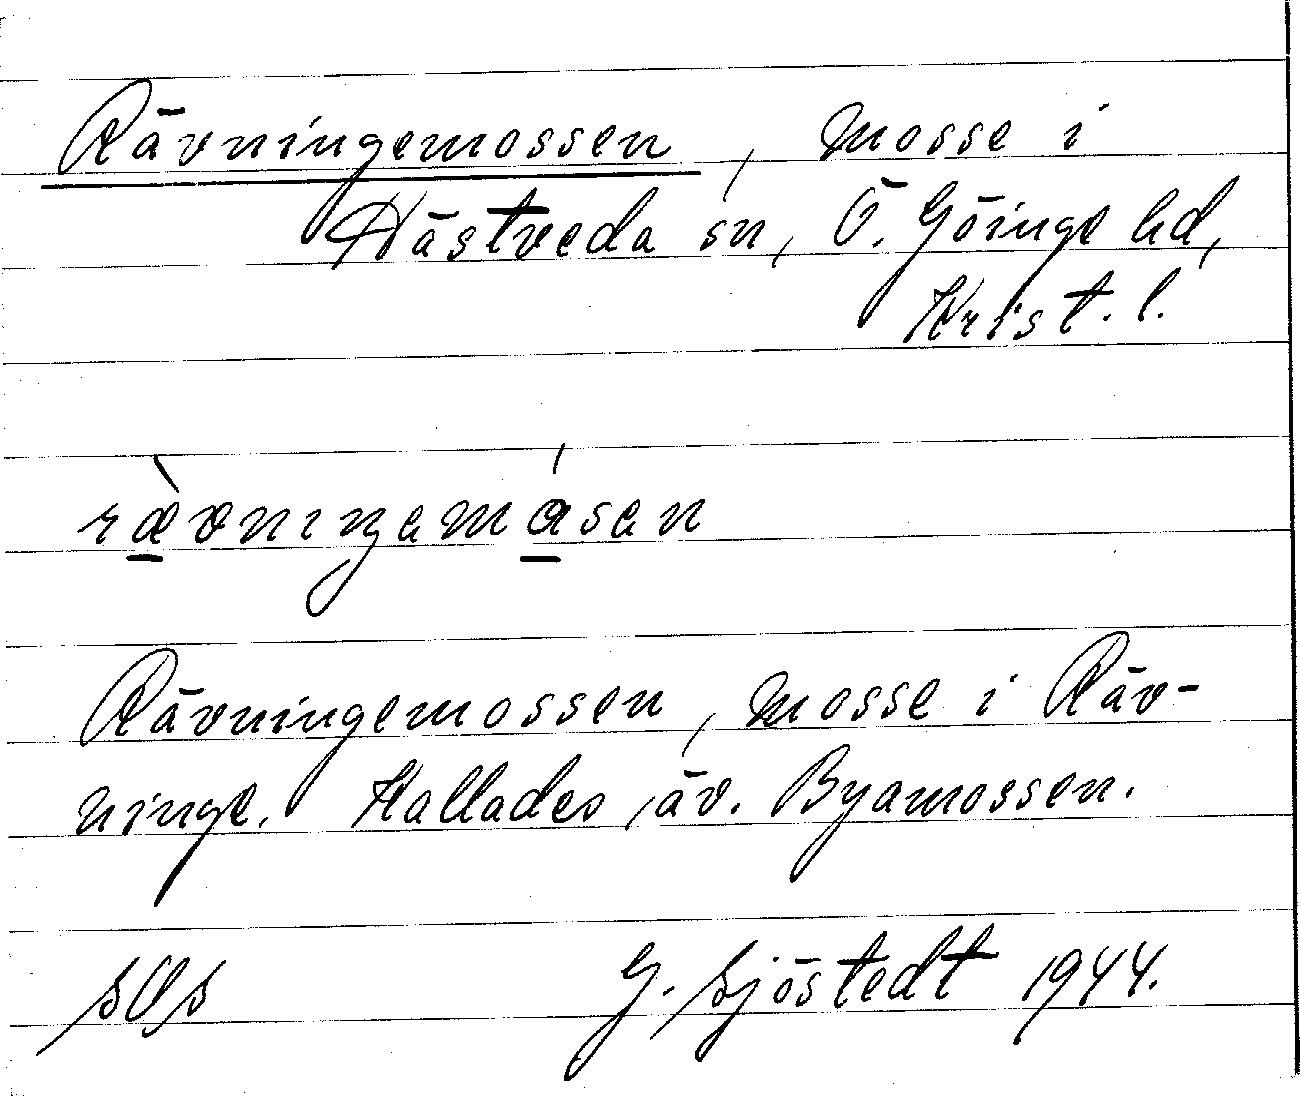 Rävningemossen, mosse i
Hästveda sn, Ö. Göinge hd,
Krist. l.
ræ̀vniŋamásan
Rävningemossen, mosse i Räv-
ninge. Kallades äv. Byamossen.
sOs G. Sjöstedt 1944.